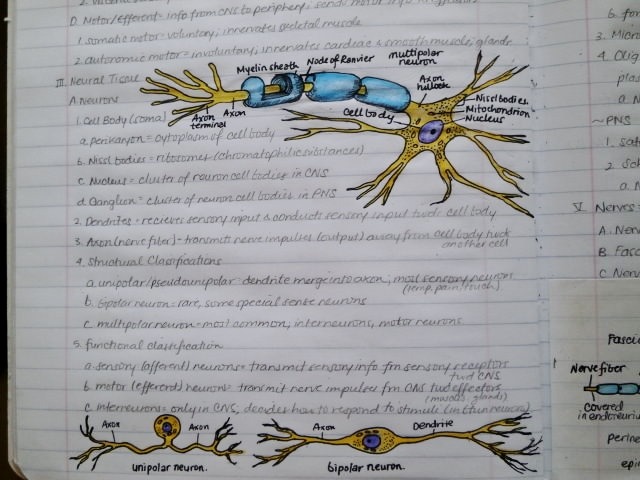 D. Motor/efferent = info from CNS to periphery; sends motor info to effectors
1. somatic motor = voluntary; innervates skeletal muscle
2. autonomic motor = involuntary, innervates cardiac & smooth muscle, glands
III. Neural Tissue
Myelin sheath
Node of Ranvier
multipolar neuron
Axon hillock
Nissl bodies
Mitochondrion
Nucleus
Cell body
Axon
Axon terminal
A. Neurons
1. Cell Body (soma)
a. perikaryon = cytoplasm of cell body
b. Nissl bodies = ribosomes (chromatophilic substances)
c. Nucleus = cluster of neuron cell bodies in CNS
d. Ganglion = cluster of neuron cell bodies in PNS
2. Dendrites = recieves sensory input & conducts sensory input twds cell body
3. Axon (nerve fiber) = transmits nerve impulses (output) away from cell body twds another cell
4. Structural Classifications
a. unipolar/pseudounipolar = dendrite merge into axon; most sensory neurons
(temp, pain, touch)
b. bipolar neuron = rare, some special sense neurons
c. multipolar neuron = most common, interneurons, motor neurons
5. functional classification
a. sensory (afferent) neurons = transmit sensory info fm sensory receptors twd CNS
b. motor (efferent) neurons = transmit nerve impulses fm CNS twd effectors
(muscles, glands)
c. interneurons = only in CNS, decides how to respond to stimuli (in btwn neurons)
Axon
Axon
unipolar neuron.
Axon
Dendrite
bipolar neuron.
3. Micro
4. Olig
~PNS
1. sat
V. Nerves =
A. Nerv
B. Fasc
C. Nerv
Fascic
Nerve fiber
covered
in endoneurium
perine
epi